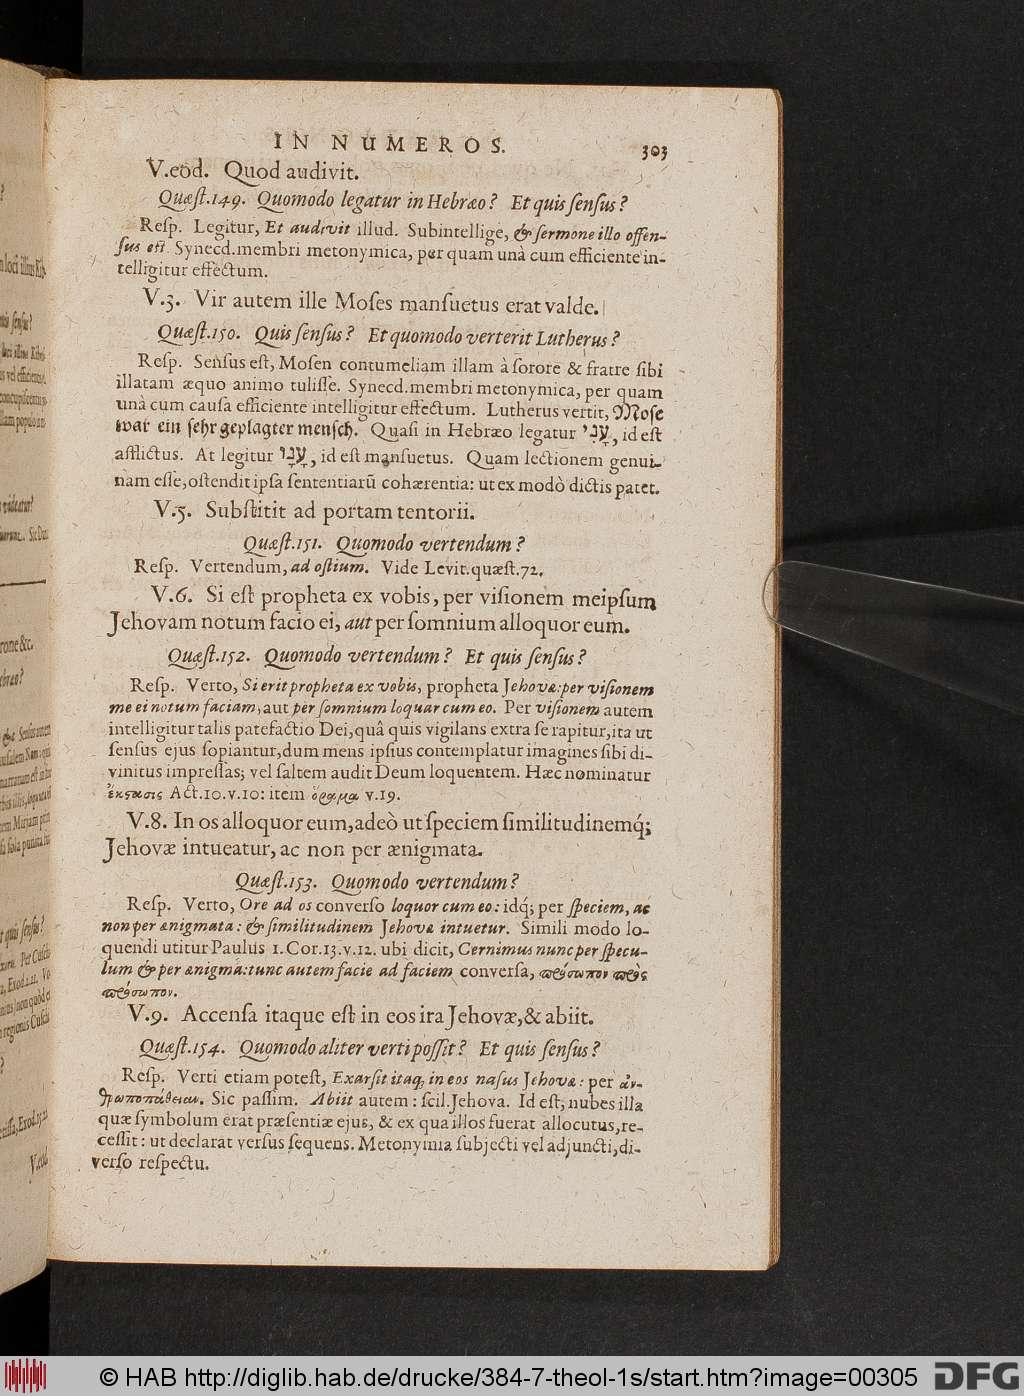 IN NUMEROS. 303
V.eod. Quod audivit.
Quæſt.149. Quomodo legatur in Hebræo? Et quis ſenſus?
Reſp. Legitur, Et audivit illud. Subintellige, & ſermone illo offen-
ſus eſt. Synecd.membri metonymica, per quam unà cum efficiente in-
telligitur effectum.
V.3. Vir autem ille Moſes manſuetus erat valde.
Quæſt.150. Quis ſenſus? Et quomodo verterit Lutherus?
Reſp. Senſus eſt, Moſen contumeliam illam à ſorore & fratre ſibi
illatam æquo animo tuliſſe. Synecd.membri metonymica, per quam
unà cum cauſa efficiente intelligitur effectum. Lutherus vertit, Moſe
war ein ſehr geplagter menſch. Quaſi in Hebræo legatur עָנִי, id eſt
afflictus. At legitur עָנָו, id eſt manſuetus. Quam lectionem genui-
nam eſſe, oſtendit ipſa ſententiarũ cohærentia: ut ex modò dictis patet.
V.5. Subſtitit ad portam tentorii.
Quæſt.151. Quomodo vertendum?
Reſp. Vertendum, ad oſtium. Vide Levit.quæſt.72.
V.6. Si eſt propheta ex vobis, per viſionem meipſum
Jehovam notum facio ei, aut per ſomnium alloquor eum.
Quæſt.152. Quomodo vertendum? Et quis ſenſus?
Reſp. Verto, Si erit propheta ex vobis, propheta Jehovæ: per viſionem
me ei notum faciam, aut per ſomnium loquar cum eo. Per viſionem autem
intelligitur talis patefactio Dei, quâ quis vigilans extra ſe rapitur, ita ut
ſenſus ejus ſopiantur, dum mens ipſius contemplatur imagines ſibi di-
vinitus impreſſas; vel ſaltem audit Deum loquentem. Hæc nominatur
ἔκςασις Act.10.v.10: item ὅραμα v.19.
V.8. In os alloquor eum, adeò ut ſpeciem ſimilitudinemq́;
Jehovæ intueatur, ac non per ænigmata.
Quæſt.153. Quomodo vertendum?
Reſp. Verto, Ore ad os converſo loquor cum eo: idq́; per ſpeciem, ac
non per ænigmata: & ſimilitudinem Jehovæ intuetur. Simili modo lo-
quendi utitur Paulus 1.Cor.13.v.12. ubi dicit, Cernimus nunc per ſpecu-
lum & per ænigma: tunc autem facie ad faciem converſa, πρόσωπον πρὸς
πρόσωπον.
V.9. Accenſa itaque eſt in eos ira Jehovæ, & abiit.
Quæſt.154. Quomodo aliter verti poſſit? Et quis ſenſus?
Reſp. Verti etiam poteſt, Exarſit itaq; in eos naſus Jehovæ: per ἀν-
θρωποπάθειαν. Sic paſſim. Abiit autem: ſcil.Jehova. Id eſt, nubes illa
quæ ſymbolum erat præſentiæ ejus, & ex qua illos fuerat allocutus, re-
ceſſit: ut declarat verſus ſequens. Metonymia ſubjecti vel adjuncti, di-
verſo reſpectu.
© HAB http://diglib.hab.de/drucke/384-7-theol-1s/start.htm?image=00305
DFG